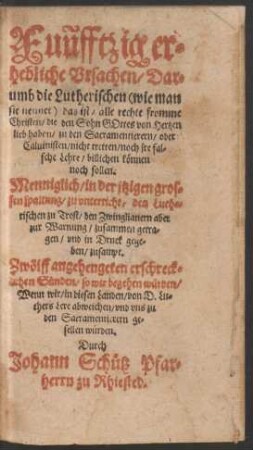 Fuͤnfftzig er-
hebliche Vrsachen / Dar-
umb die Lutherischen (wie man
sie nennet) das ist / alle rechte fromme
Christen / die den Sohn GOttes von Hertzen
lieb haben / zu den Sacramentierern / oder
Caluinisten / nicht tretten / noch ire fal-
sche Lehre / billichen können
noch sollen.
Menniglich / in der itzigen gros-
sen spaltung / zu vnterricht / den Luthe-
rischen zu Trost / den Zwinglianern aber
zur Warnung / zusammen getra-
gen / vnd in Druck gege-
ben / zusampt.
Zwölff angehengeten erschreck-
lichen Sünden / so wir begehen würden /
Wenn wir / in diesen Landen / von D. Lu-
thers Lere abweichen / vnd vns zu
den Sacramentirern ge-
sellen würden.
Durch
Johann Schütz Pfar-
herrn zu Rhiested.